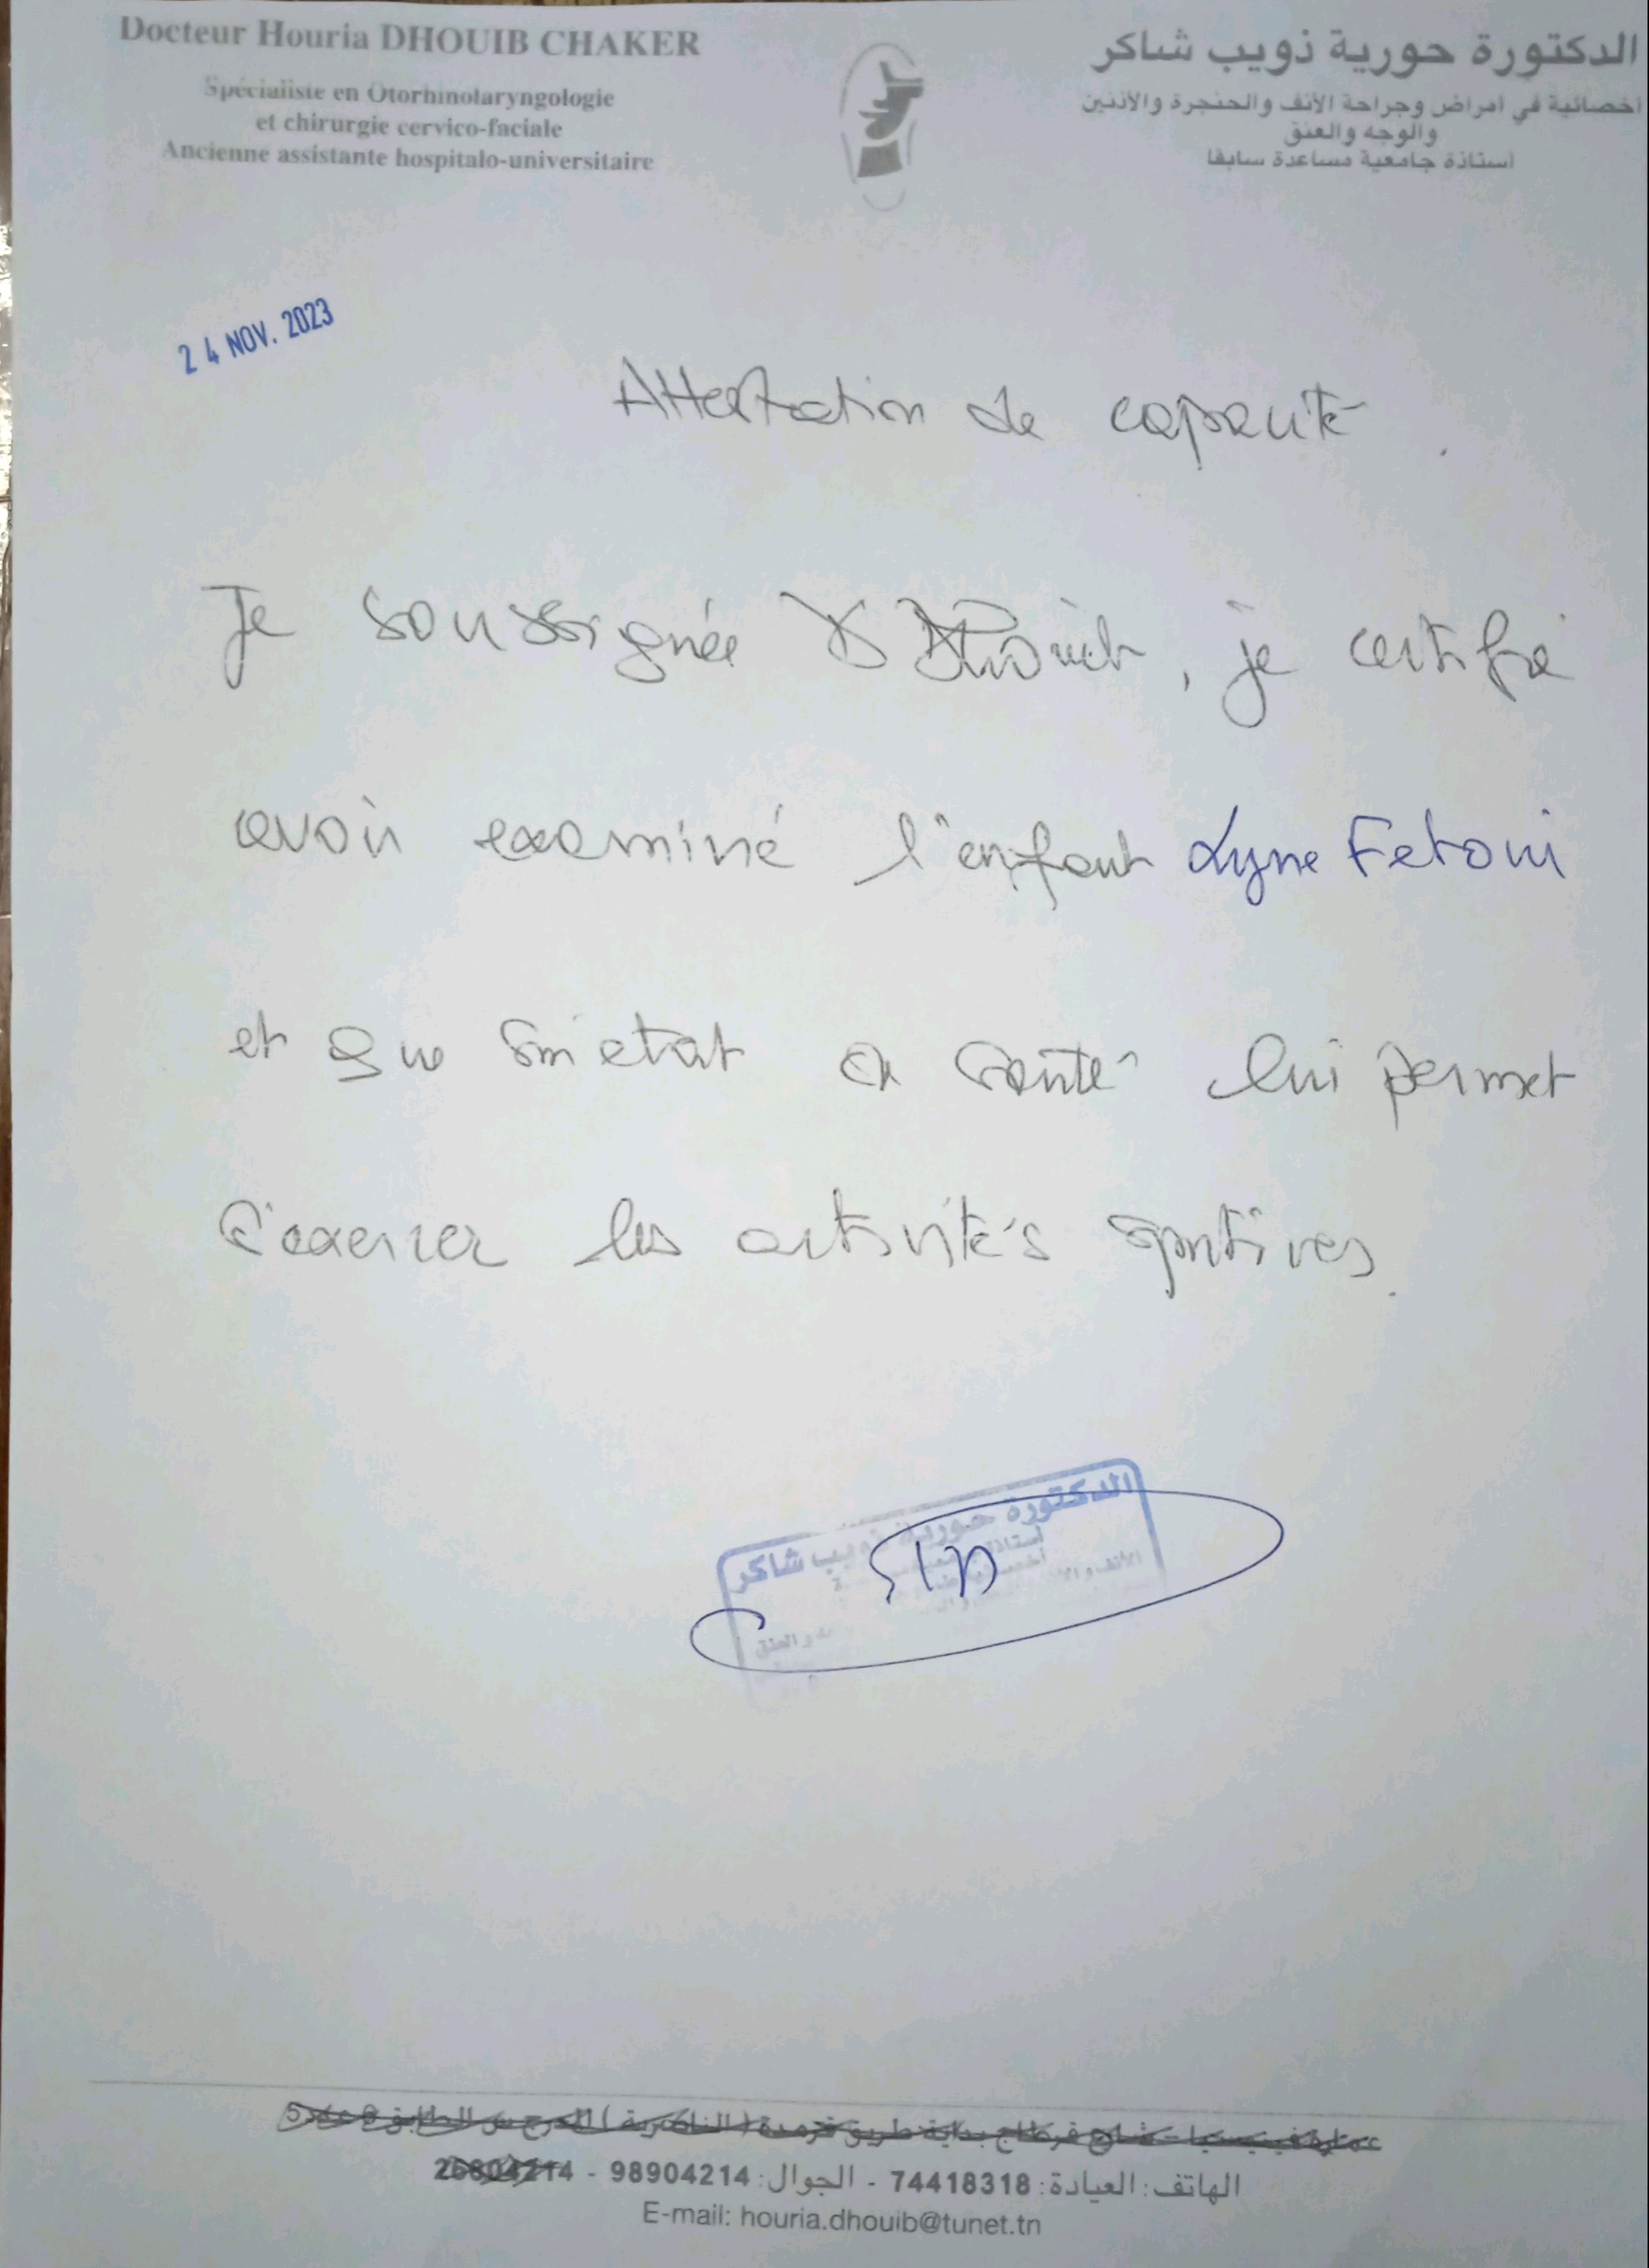 Docteur Houria DHOUIB CHAKER
Spécialiste en Otorhinolaryngologie
et chirurgie cervico-faciale
Ancienne assistante hospitalo-universitaire
الدكتورة حورية ذويب شاكر
أخصائية في أمراض وجراحة الأنف والحنجرة والأذنين
والوجه والعنق
أستاذة جامعية مساعدة سابقا
24 NOV. 2023
Attestation de capacité
Je soussignée Dr Dhouib, je certifie
avoir examiné l'enfant Lyne Fetoui
et que son etat de santé lui permet
d'exercer les activités sportives.
الدكتورة حورية ذويب شاكر
الهاتف: العيادة: 74418318 - الجوال: 98904214 - 26804214
E-mail: houria.dhouib@tunet.tn